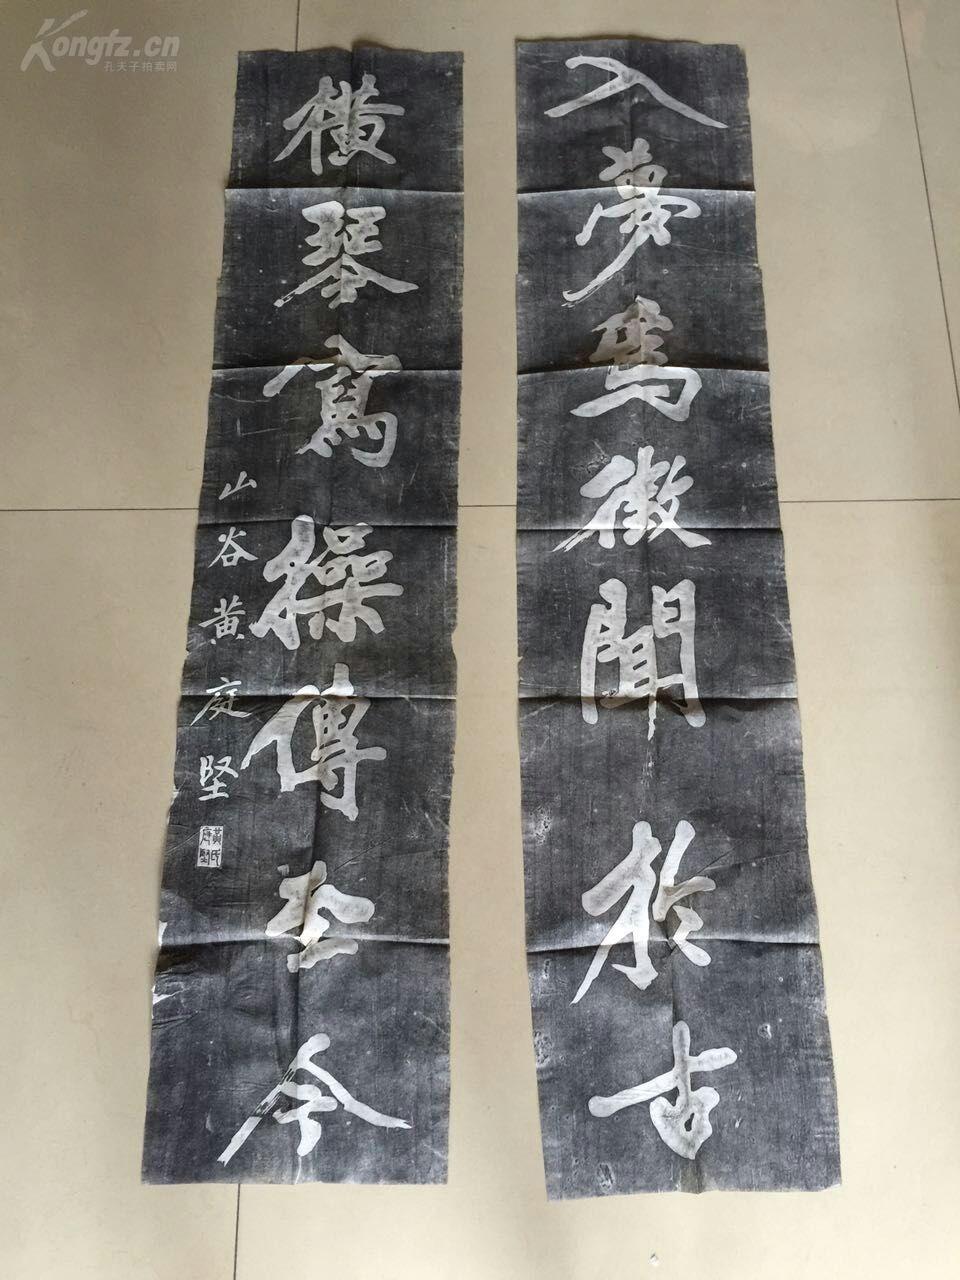 入夢爲徵聞於古
橫琴寫操傳至今
山谷黃庭堅
黃氏庭堅
Kongfz.cn
孔夫子拍卖网